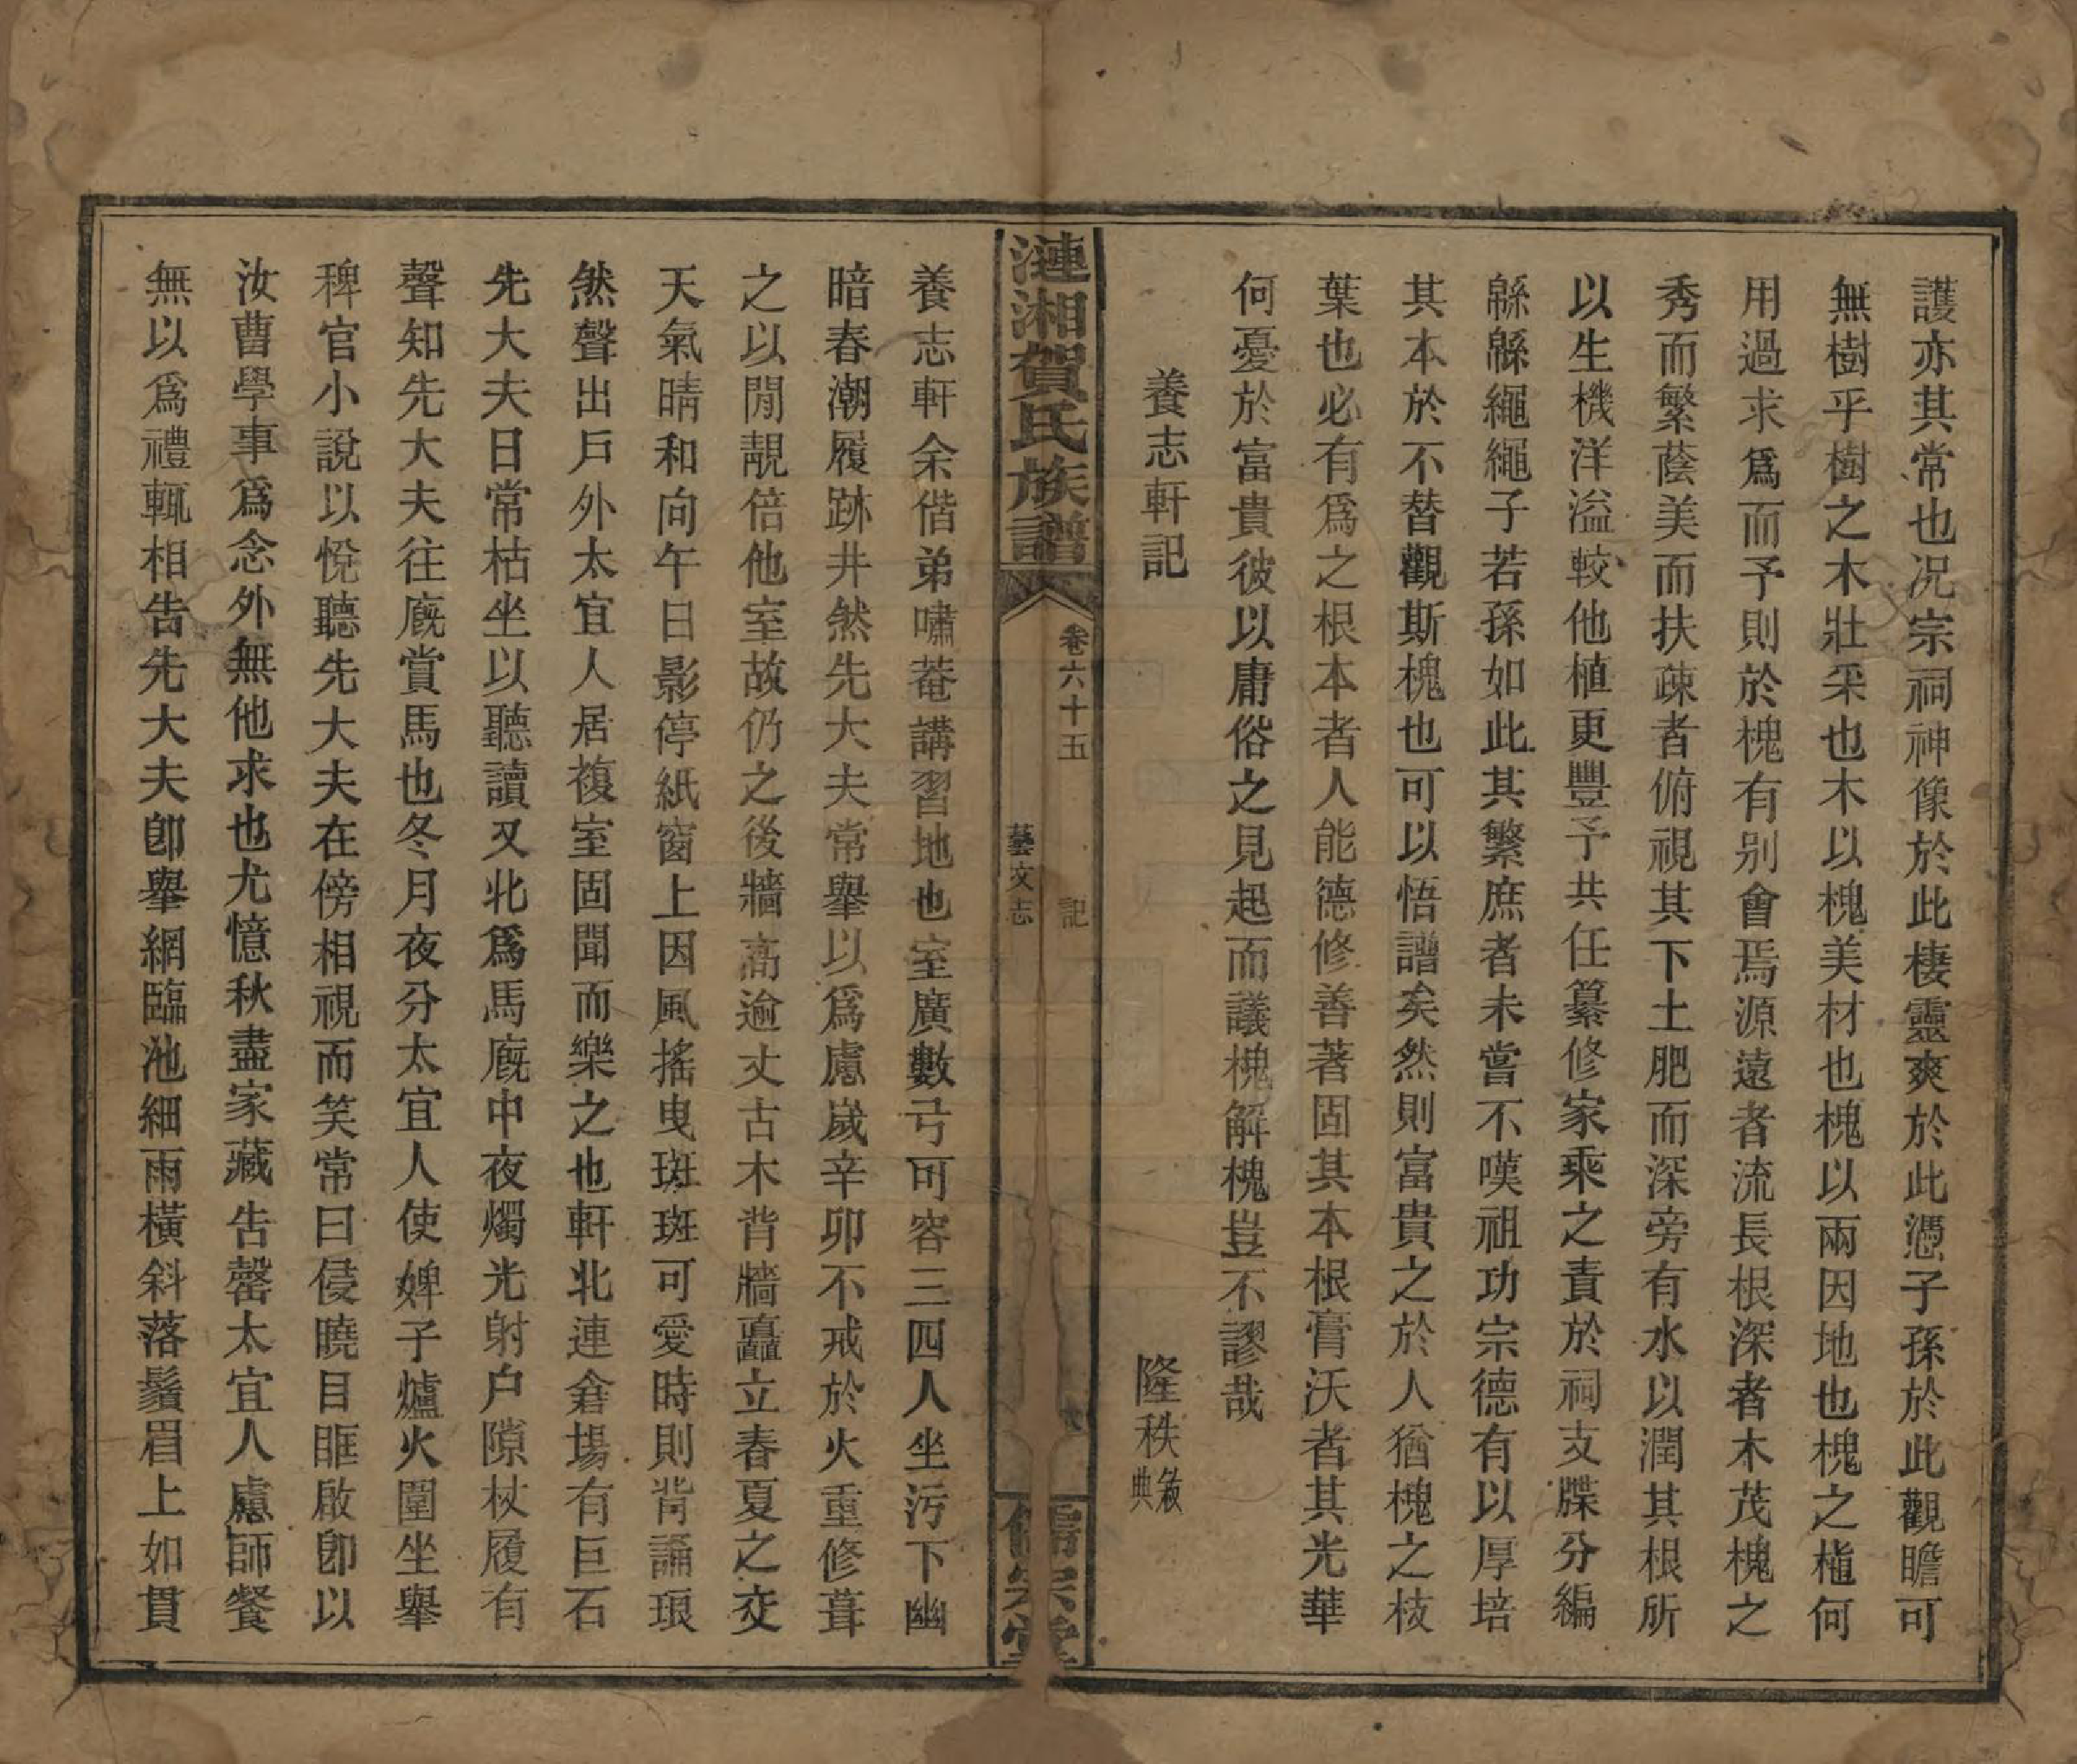 護亦其常也况宗祠神像於此棲靈爽於此憑子孫於此觀瞻可
無樹乎樹之木壯采也木以槐美材也槐以兩因地也槐之植何
用過求爲而予則於槐有别會焉源遠者流長根深者木茂槐之
秀而繁蔭美而扶疎者俯視其下土肥而深旁有水以潤其根所
以生機洋溢較他植更豐予共任纂修家乘之責於祠支牒分編
緜緜繩繩子若孫如此其繁庶者未嘗不嘆祖功宗德有以厚培
其本於不替觀斯槐也可以悟譜矣然則富貴之於人猶槐之枝
葉也必有爲之根本者人能德修善著固其本根膏沃者其光華
何憂於富貴彼以庸俗之見起而議槐解槐豈不謬哉
養志軒記 隆秩敍典
漣湘賀氏族譜 卷六十五 記 藝文志 儒宗堂
養志軒余偕弟嘯菴講習地也室廣數弓可容三四人坐污下幽
暗春潮履跡井然先大夫常舉以爲慮嵗辛卯不戒於火重修葺
之以閒靚倍他室故仍之後牆高逾丈古木背牆矗立春夏之交
天氣晴和向午日影停紙窗上因風搖曳斑斑可愛時則背誦琅
然聲出戶外太宜人居複室固聞而樂之也軒北連倉場有巨石
先大夫日常枯坐以聽讀又北爲馬廐中夜燭光射户隙杖履有
聲知先大夫往廐賞馬也冬月夜分太宜人使婢子爐火圍坐舉
稗官小說以悅聽先大夫在傍相視而笑常曰侵曉目眶啟卽以
汝曹學事爲念外無他求也尤憶秋盡家藏告罄太宜人慮師餐
無以爲禮輒相告先大夫卽舉網臨池細雨橫斜落鬚眉上如貫